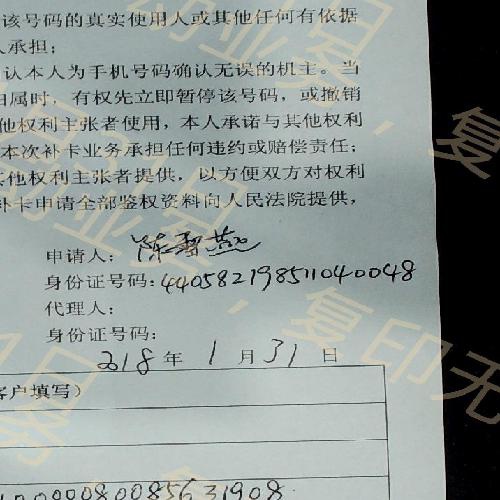 该号码的真实使用人或其他任何有依据
人承担;
认本人为手机号码确认无误的机主。当
归属时,有权先立即暂停该号码,或撤销
他权利主张者使用,本人承诺与其他权利
本次补卡业务承担任何违约或赔偿责任;
其他权利主张者提供,以方便双方对权利
补卡申请全部鉴权资料向人民法院提供,
申请人:陈雪燕
身份证号码:440582198511040048
代理人:
身份证号码:
2018年1月31日
客户填写)
0000080085631908